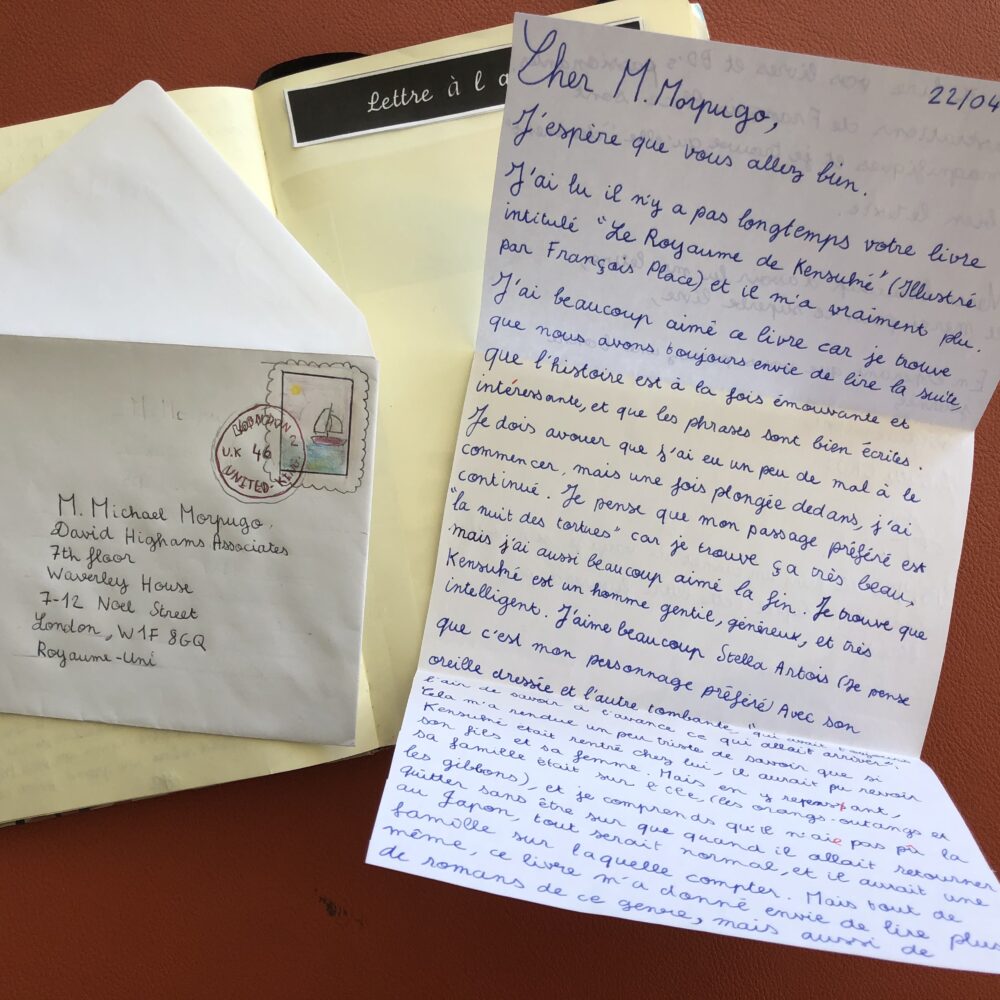 Lettre à l'a
Cher M. Morpugo,
22/04
J'espère que vous allez bien.
J'ai lu il n'y a pas longtemps votre livre
intitulé "Le Royaume de Kensuké" (Illustré
par François Place) et il m'a vraiment plu.
J'ai beaucoup aimé ce livre car je trouve
que nous avons toujours envie de lire la suite,
que l'histoire est à la fois émouvante et
intéressante, et que les phrases sont bien écrites.
Je dois avouer que j'ai eu un peu de mal à le
commencer, mais une fois plongée dedans, j'ai
continué. Je pense que mon passage préféré est
"la nuit des tortues" car je trouve ça très beau,
mais j'ai aussi beaucoup aimé la fin. Je trouve que
Kensuké est un homme gentil, généreux, et très
intelligent. J'aime beaucoup Stella Artois (Je pense
que c'est mon personnage préféré) Avec son
oreille dressée et l'autre tombante, "qui avait
l'air de savoir à l'avance ce qui allait arriver".
Cela m'a rendue un peu triste de savoir que si
Kensuké était rentré chez lui, il aurait pu revoir
son fils et sa femme. Mais en y repensant,
sa famille était sur l'île, (les orangs-outangs et
les gibbons), et je comprends qu'il n'aie pas pû la
quitter sans être sur que quand il allait retourner
au Japon, tout serait normal, et il aurait une
famille sur laquelle compter. Mais tout de
même, ce livre m'a donné envie de lire plus
de romans de ce genre, mais aussi de
LONDON
U.K 46 2
UNITED-KING
M. Michael Morpugo,
David Highams Associates
7th floor
Waverley House
7-12 Noel Street
London, W1F 8GQ
Royaume-Uni